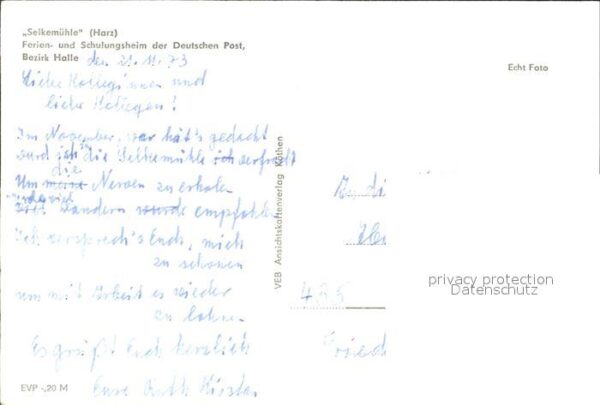 „Selkemühle" (Harz)
Ferien- und Schulungsheim der Deutschen Post,
Bezirk Halle
den 21.11.73
Echt Foto
Liebe Kolleginnen und
liebe Kollegen!
Im November, wer hät's gedacht
ward ich in die Selkemühle verfracht
Um meine die Nerven zu erholen
wandern wurde empfohlen
Ich versprech's Euch, mich
zu schonen
um mit Arbeit es wieder
zu lohnen
Es grüßt Euch herzlich
Eure Ruth
VEB Ansichtskartenverlag Köthen
485
Fried
privacy protection
Datenschutz
EVP -,20 M